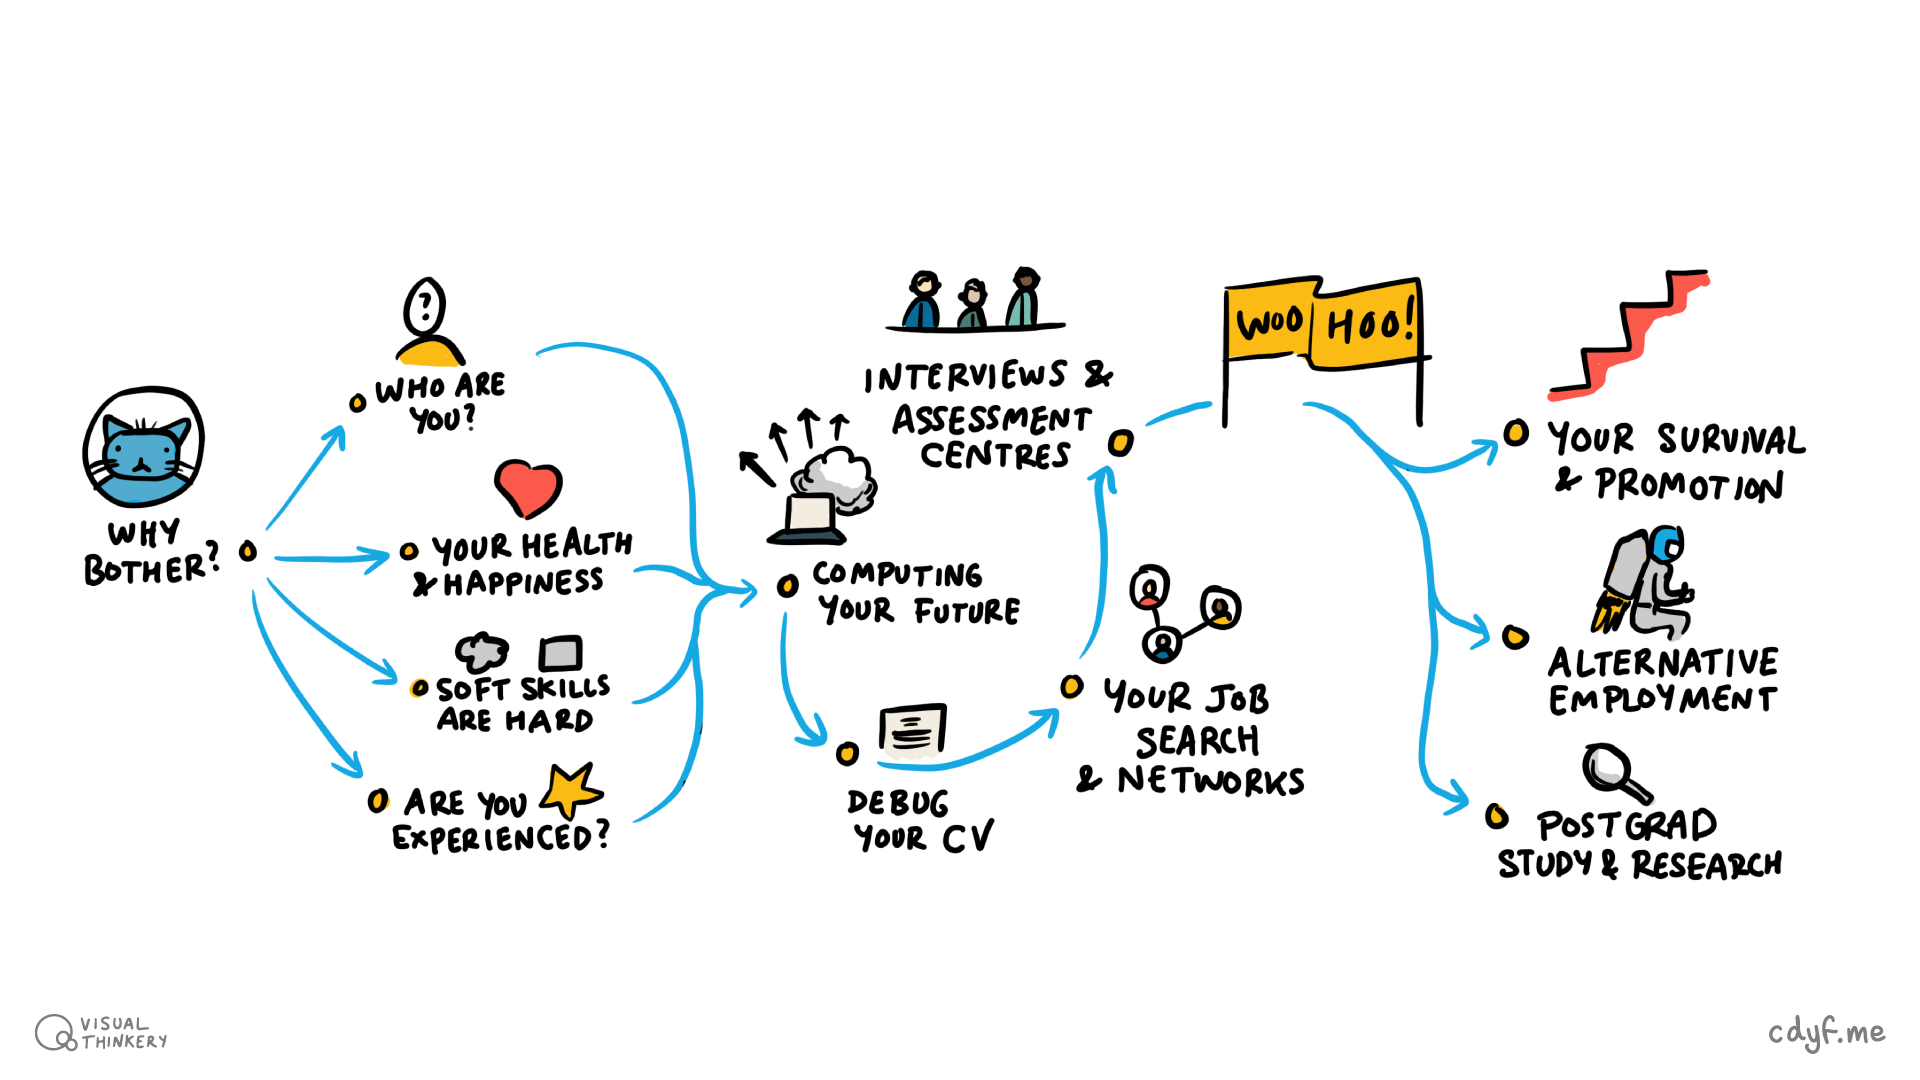 WHY
BOTHER?
?
WHO ARE
YOU?
YOUR HEALTH
& HAPPINESS
SOFT SKILLS
ARE HARD
ARE YOU
EXPERIENCED?
COMPUTING
YOUR FUTURE
DEBUG
YOUR CV
YOUR JOB
SEARCH
& NETWORKS
INTERVIEWS &
ASSESSMENT
CENTRES
WOO HOO!
YOUR SURVIVAL
& PROMOTION
ALTERNATIVE
EMPLOYMENT
POSTGRAD
STUDY & RESEARCH
VISUAL
THINKERY
cdyf.me